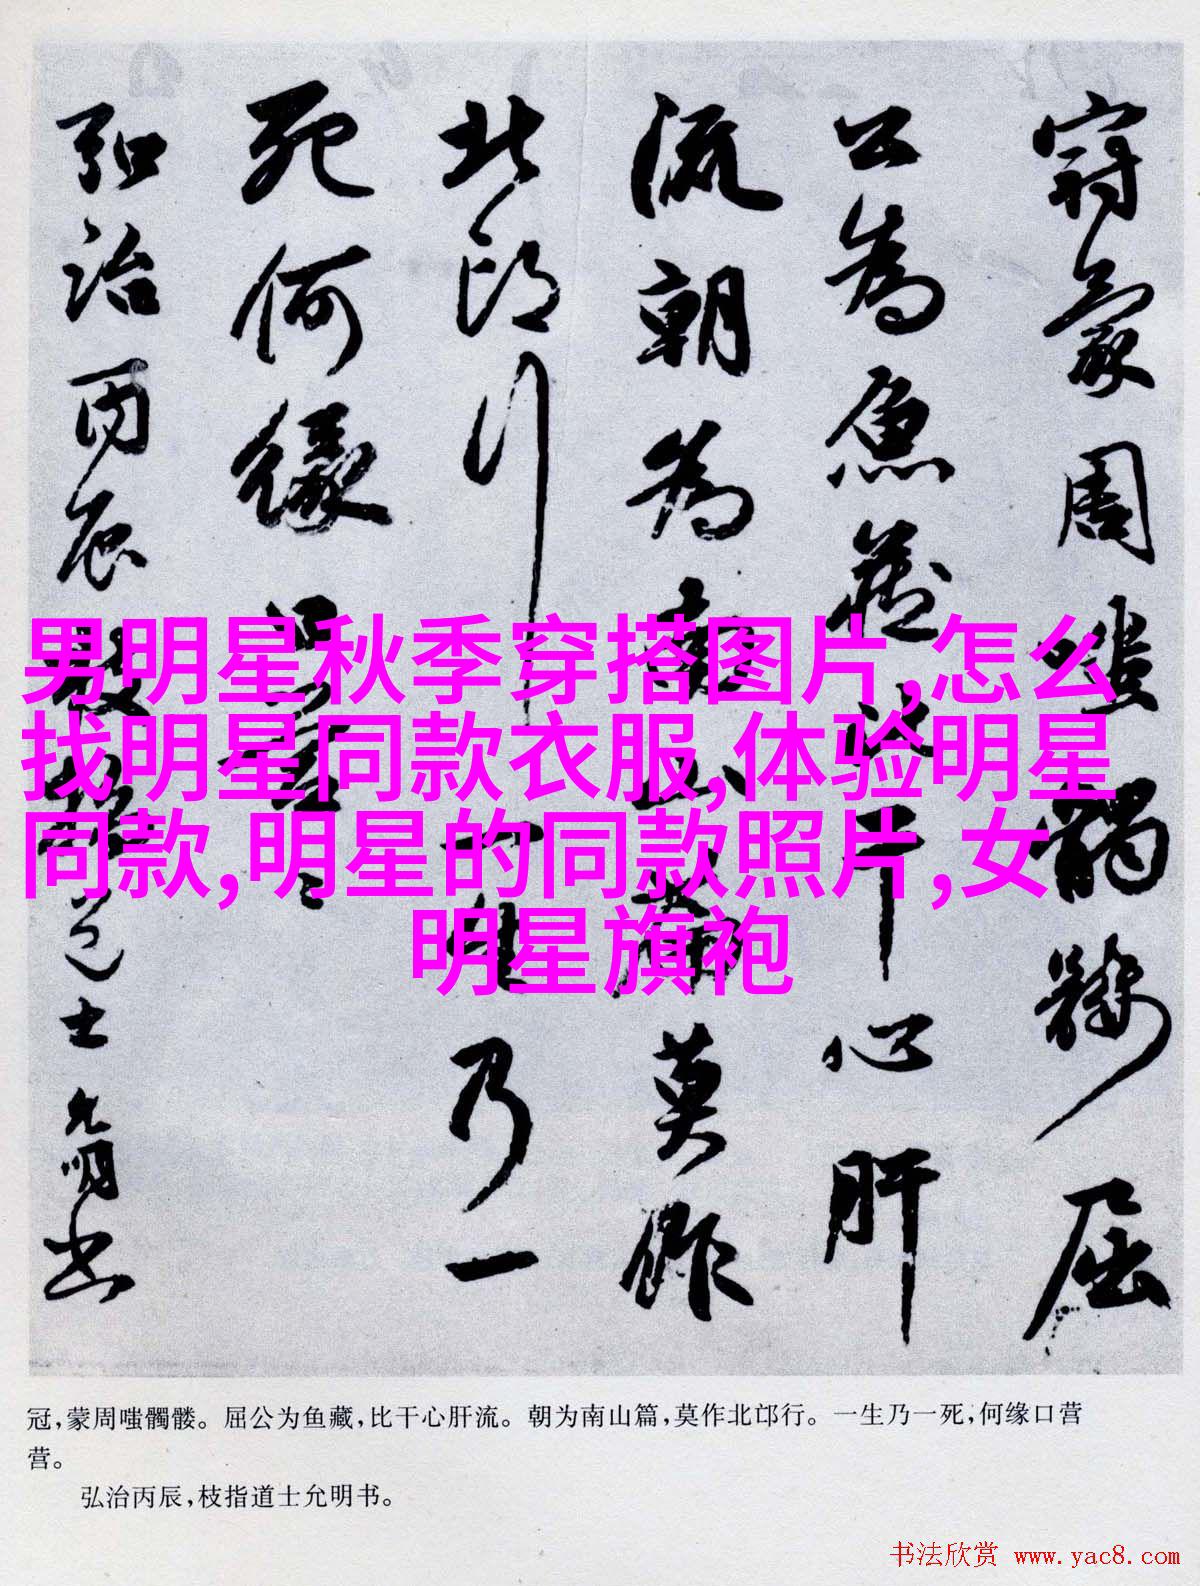 冠蒙周嗤髑髅屈
公为鱼藏比干心肝
流朝为南山篇莫作
北邙行一生乃一
死何缘口营营
弘治丙辰枝指道士允明书
男明星秋季穿搭图片,怎么
找明星同款衣服,体验明星
同款,明星的同款照片,女
明星旗袍
冠,蒙周嗤髑髅。屈公为鱼藏,比干心肝流。朝为南山篇,莫作北邙行。一生乃一死,何缘口营
营。
弘治丙辰,枝指道士允明书。
书法欣赏 www.yac8.com